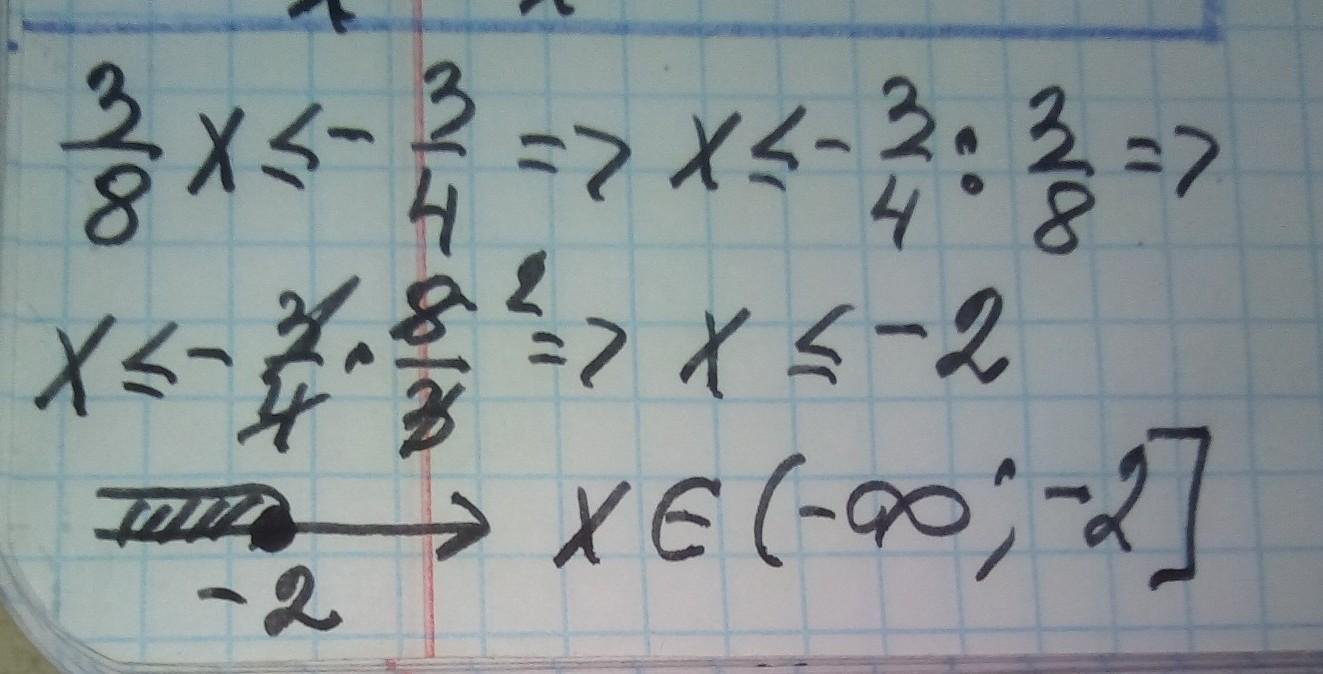 3/8 x ≤ - 3/4 => x ≤ - 3/4 : 3/8 =>
x ≤ - 3/4 · 8/3 2 => x ≤ -2
-2 x ∈ (-∞; -2]